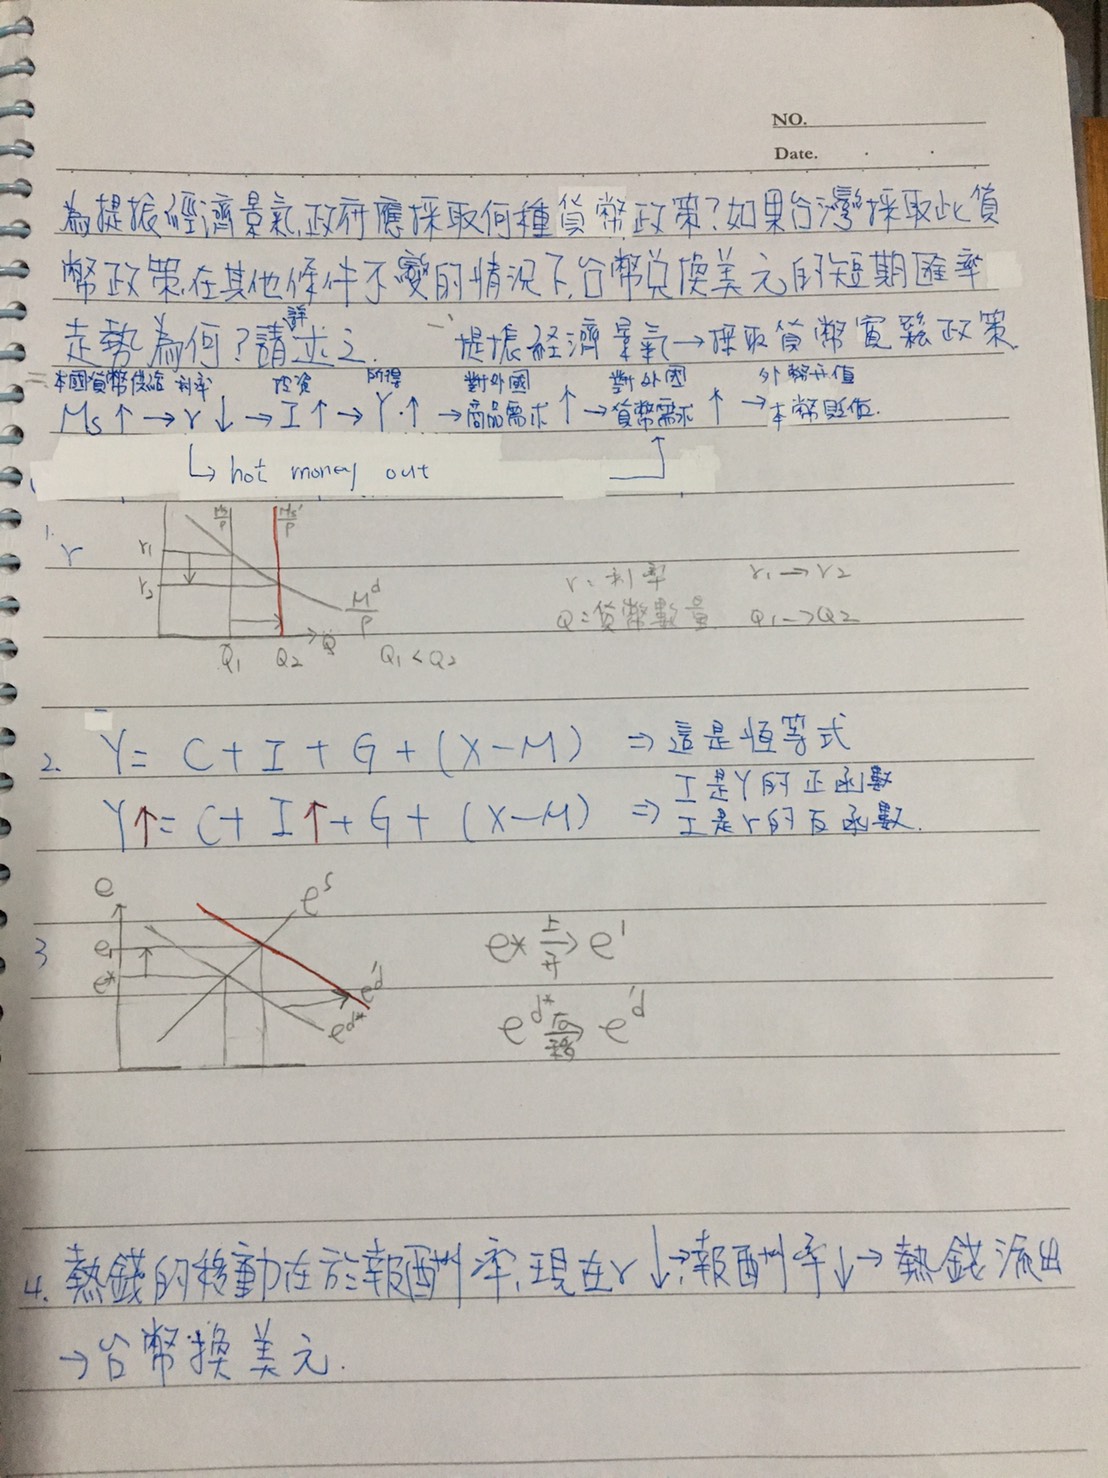 NO.
Date.
為提振經濟景氣,政府應採取何種貨幣政策?如果台灣採取此貨
幣政策,在其他條件不變的情況下,台幣兌換美元的短期匯率
走勢為何?請詳述之. 一、提振經濟景氣→採取貨幣寬鬆政策
二、本國貨幣供給 利率 投資 所得 對外國 對外國 外幣升值
Ms↑→r↓→I↑→Y↑→商品需求↑→貨幣需求↑→本幣貶值.
↳ hot money out
1. r
Ms/P Ms'/P
r1
r2
M^d/P
Q1 Q2 Q Q1 < Q2
r:利率 r1→r2
Q:貨幣數量 Q1→Q2
2. Y = C + I + G + (X-M) ⇒ 這是恆等式
I是Y的正函數
Y↑= C + I↑+ G + (X-M) ⇒ I是r的反函數.
3
e e^s
e1
e*
e'd
e^d*
e* 上升→ e'
e^d* 右移→ e'd
4. 熱錢的移動在於報酬率,現在r↓→報酬率↓→熱錢流出
→台幣換美元.